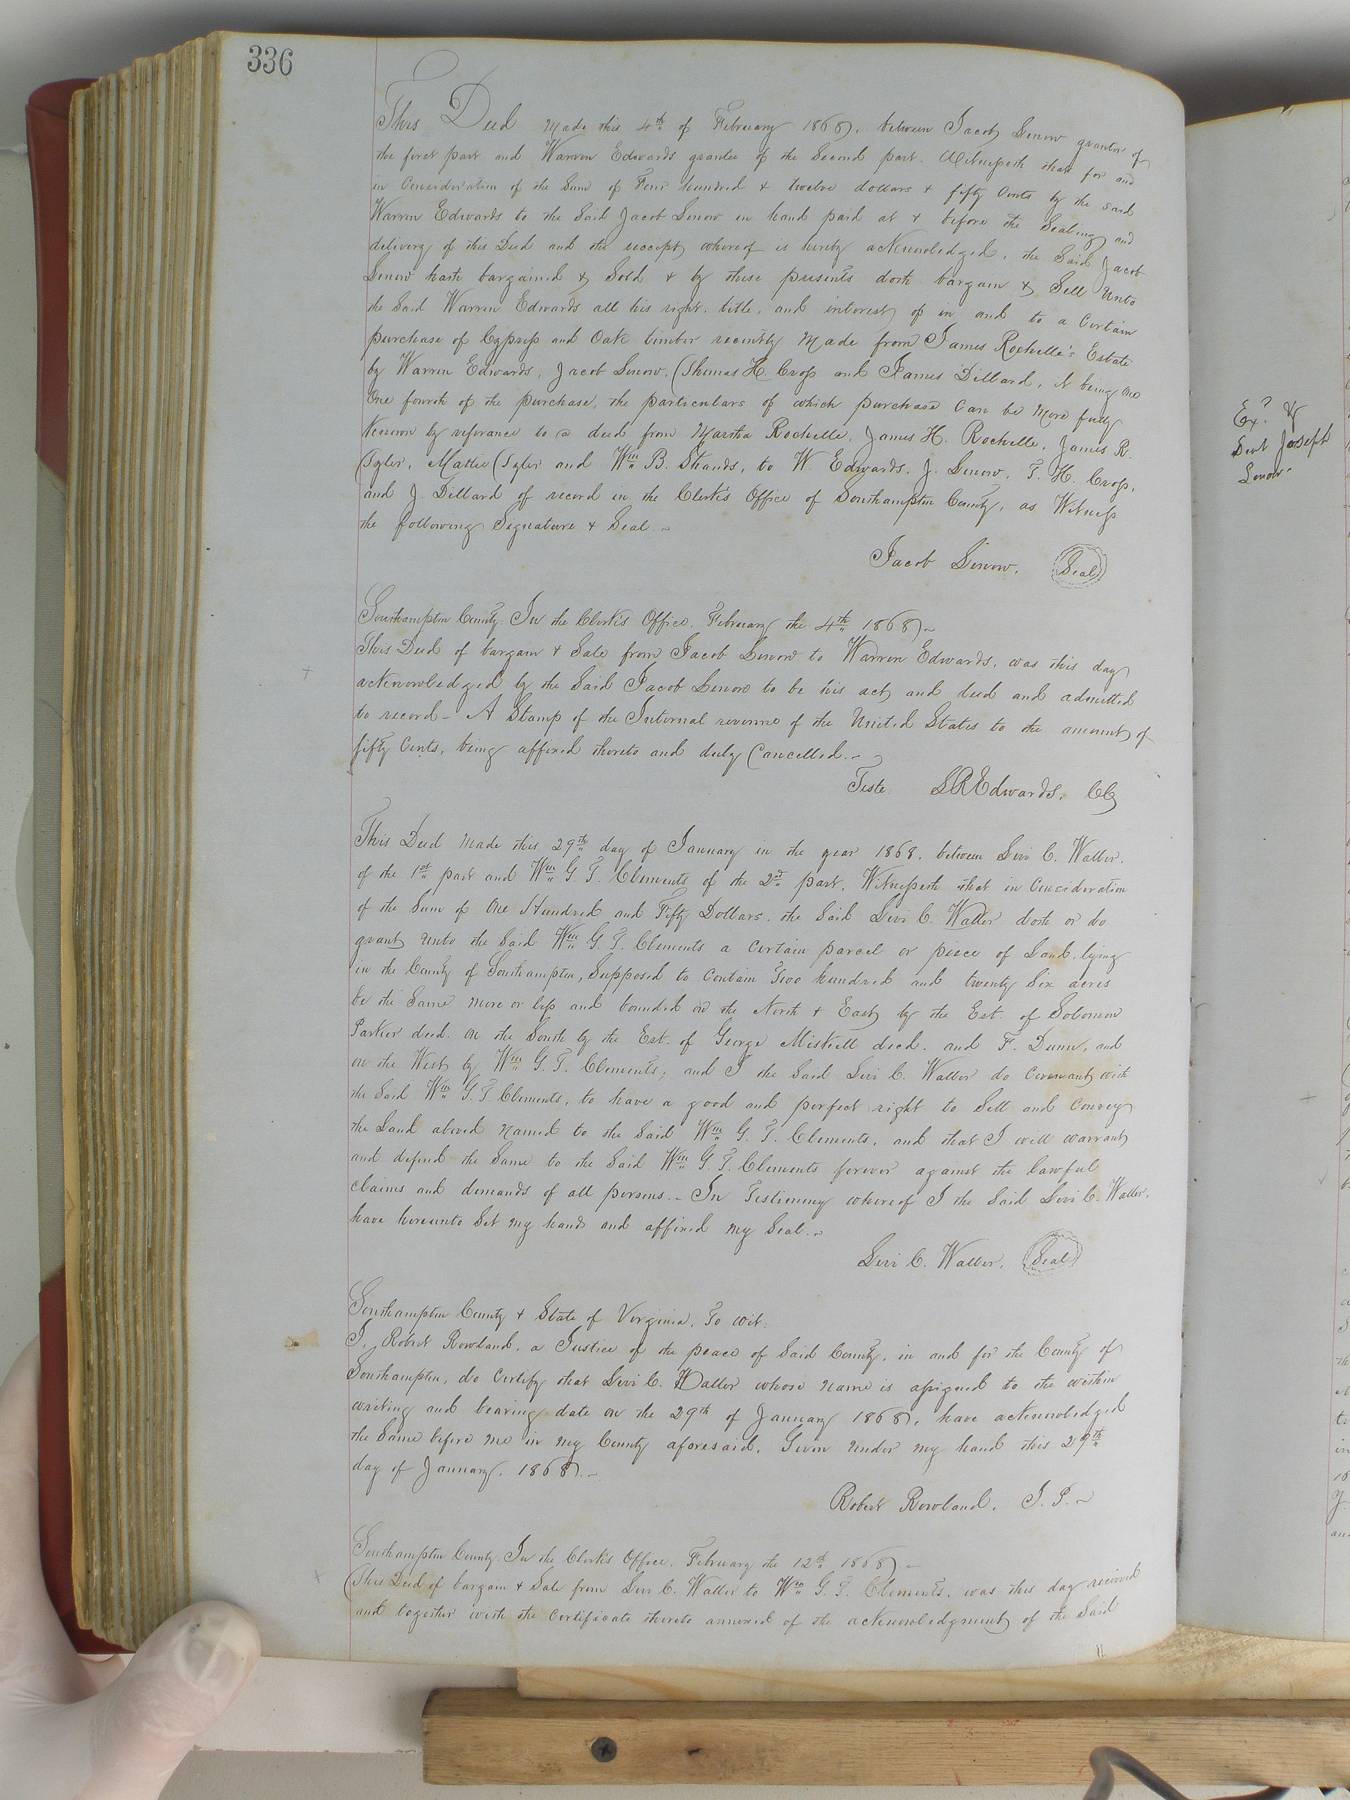 336
This Deed made this 4th of February 1868, between Jacob Lenow grantor of
the first part and Warren Edwards grantee of the Second part. Witnesseth that for and
in Consideration of the Sum of Four hundred & twelve dollars & fifty Cents by the said
Warren Edwards to the Said Jacob Lenow in hand paid at & before the Sealing and
delivery of this Deed and the receipt whereof is hereby acknowledged, the Said Jacob
Lenow hath bargained & Sold & by these presents doth bargain & Sell unto
the Said Warren Edwards all his right, title, and interest of in and to a Certain
purchase of Cypress and Oak timber recently made from James Rochelle's Estate
by Warren Edwards, Jacob Lenow, Thomas H. Cross and James Dillard, it being one
One fourth of the purchase, the particulars of which purchase Can be more fully
Known by referance to a deed from Martha Rochelle, James H. Rochelle, James R.
Tyler, Mattie Tyler and Wm B. Shands, to W Edwards. J. Lenow, T. H. Cross,
and J. Dillard of record in the Clerk's Office of Southampton County, as Witness
the following Signature & Seal.
Jacob Lenow. Seal
Southampton County. In the Clerk's Office. February the 4th 1868
This Deed of bargain & Sale from Jacob Lenow to Warren Edwards, was this day
acknowledged by the Said Jacob Lenow to be his act and deed and admitted
to record - A Stamp of the Internal revenue of the United States to the amount of
fifty Cents, being affixed thereto and duly Cancelled.
Teste L R Edwards. CC
This Deed made this 29th day of January in the year 1868. between Levi C. Waller.
of the 1st part and Wm G. T. Clements of the 2nd part, Witnesseth that in Consideration
of the Sum of One Hundred and Fifty Dollars. the Said Levi C. Waller doth or do
grant unto the Said Wm G. T. Clements a certain parcel or piece of Land lying
in the County of Southampton, Supposed to Contain Two hundred and twenty Six acres
be the Same more or less and bounded on the North & East by the Est. of Solomon
Parker decd. on the South by the Est. of George Miskell decd. and F. Dunn, and
on the West by Wm G. T. Clements; and I the Said Levi C. Waller do Covenant with
the Said Wm G. T Clements, to have a good and perfect right to Sell and Convey
the Land above named to the Said Wm G. T. Clements, and that I will warrant
and defend the Same to the Said Wm G. T. Clements forever against the lawful
claims and demands of all persons. - In Testimony whereof I the Said Levi C. Waller,
have hereunto Set my hand and affixed my Seal.
Levi C. Waller. Seal
Southampton County & State of Virginia. To wit.
I, Robert Rowland, a Justice of the peace of Said County, in and for the County of
Southampton, do Certify that Levi C. Waller whose name is assigned to the within
writing and bearing date on the 29th of January 1868, have acknowledged
the Same before me in my County aforesaid. Given under my hand this 29th
day of January, 1868.
Robert Rowland. J. P.
Southampton County. In the Clerk's Office. February the 12th 1868
This Deed of bargain & Sale from Levi C. Waller to Wm G. T. Clements, was this day received
and together with the Certificate thereto annexed of the acknowledgment of the Said
Joseph
Lenow